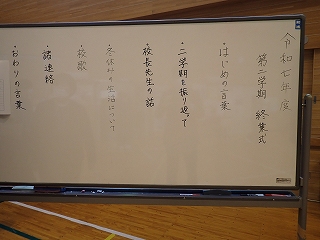 令和七年度
第二学期 終業式
・はじめの言葉
・二学期を振り返って
・校長先生の話
・冬休みの生活について
・校歌
・諸連絡
・おわりの言葉